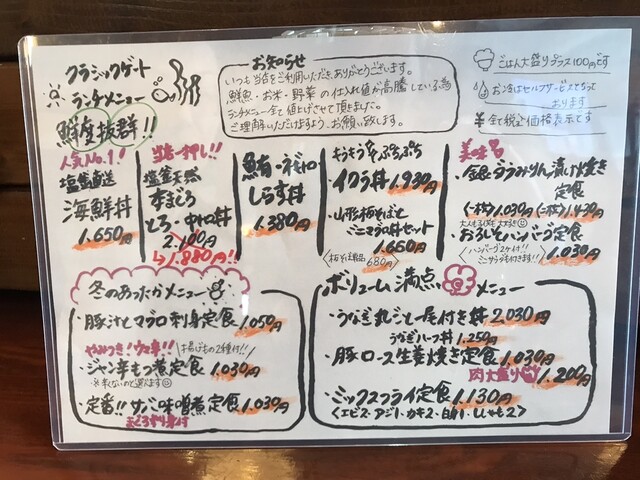 クラシックゲート
ランチメニュー
鮮度抜群!!
お知らせ
いつも当店をご利用いただき、ありがとうございます。
鮮魚・お米・野菜の仕入れ値が高騰している為
ランチメニュー全て値上げさせて頂きました。
ご理解いただけますよう、お願い致します。
ごはん大盛りプラス100円です
お冷はセルフサービスとなって
おります
¥全て税込価格表示です
人気No.1!
塩釜直送
海鮮丼
1,650円
当店一押し!!
塩釜天然
本まぐろ
とろ・中トロ丼
2,100円
↳1,880円!!
鮪・ネギトロ
しらす丼
1,380円
イクラ丼 1,930円
・山形板そばと
ミニマグロ丼セット
1,660円
〈板そば単品 680円〉
美味
・金目鯛みりん漬け焼き
定食
(一枚)1,030円 (二枚)1,430円
・おろしとんハンバーグ定食
〈ハンバーグ2ヶ付!!
ミニサラダも付きます!!〉
1,030円
冬のあったかメニュー
・豚汁とマグロ刺身定食 1,050円
やみつき!ウマ辛!!
〈揚げもの2種付!!〉
・ジャン辛もつ煮定食 1,030円
※辛くないのも選べます
・定番!!サバ味噌煮定食 1,030円
まぐろ刺身付
ボリューム満点メニュー
・うなぎ丸ごと一尾付き丼 2,030円
うなぎハーフ丼 1,250円
・豚ロース生姜焼き定食 1,030円
肉大盛り 1,200円
・ミックスフライ定食 1,130円
〈エビ2・アジ1・カキ2・白身1・ししゃも2〉